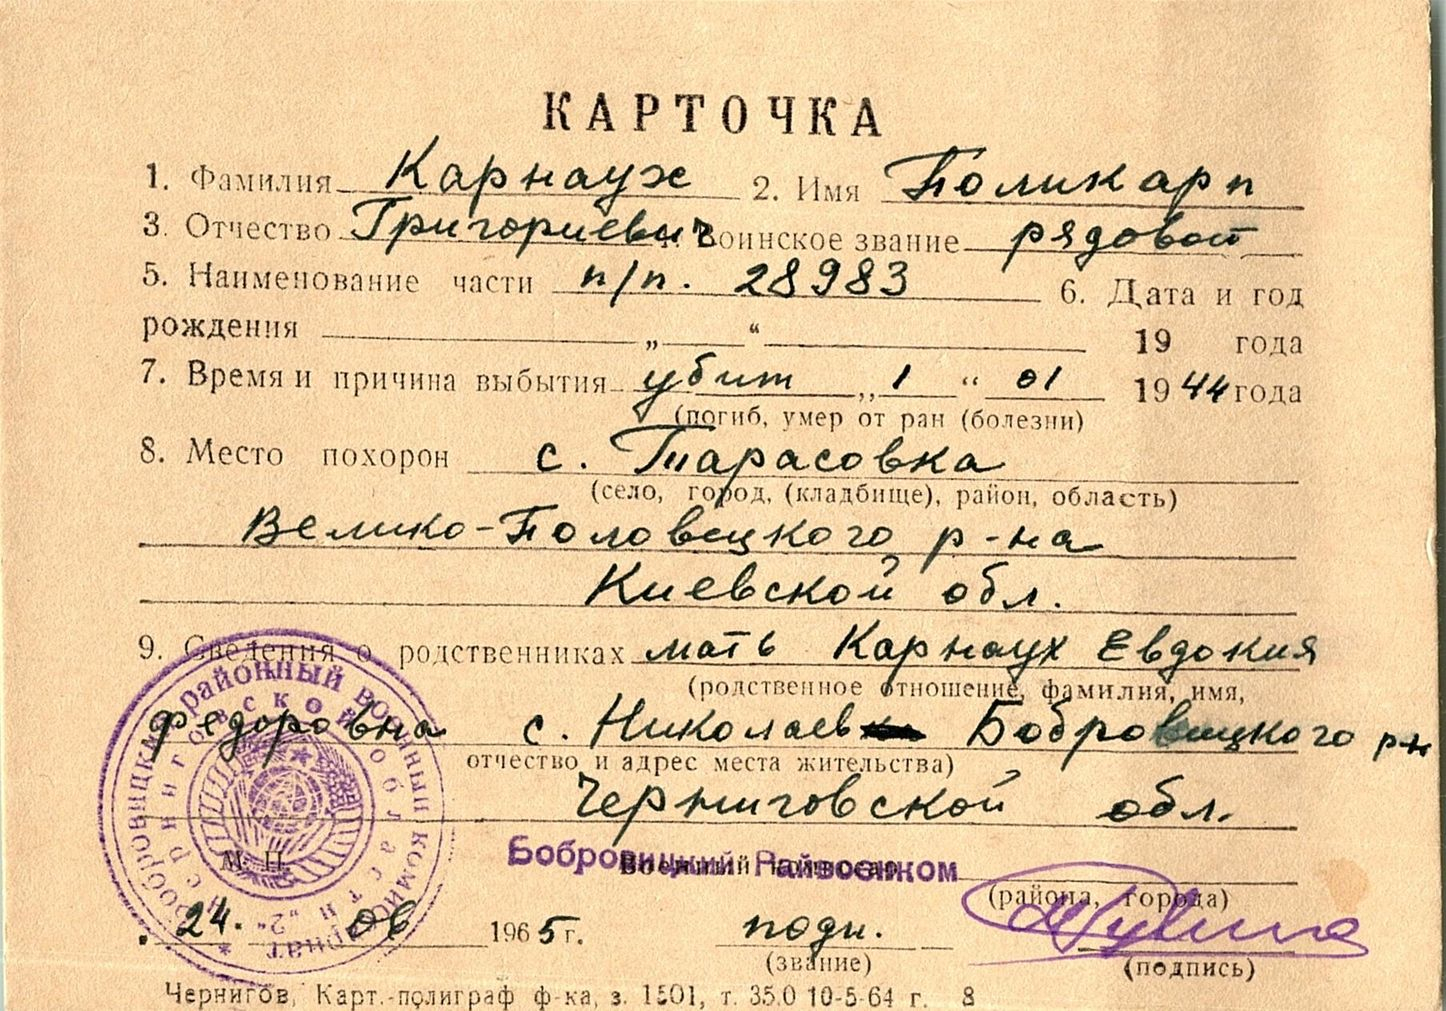 КАРТОЧКА
1. Фамилия Карнаух 2. Имя Поликарп
3. Отчество Григориевич Воинское звание рядовой
5. Наименование части п/п. 28983 6. Дата и год
рождения „ “ 19 года
7. Время и причина выбытия убит „ 1 “ 01 1944 года
(погиб, умер от ран (болезни)
8. Место похорон с. Тарасовка
(село, город, (кладбище), район, область)
Велико-Половецкого р-на
Киевской обл.
9. Сведения о родственниках мать Карнаух Евдокия
(родственное отношение, фамилия, имя,
Федоровна с. Николаев Бобровицкого р-н
отчество и адрес места жительства)
Черниговской обл.
М. П. Военный комиссар
Бобровицкий Райвоенком
(района, города)
24. 06 1965 г. подп.
(звание) (подпись)
Чернигов, Карт.-полиграф ф-ка, з. 1501, т. 35.0 10-5-64 г. 8
Бобровицкий районный военный комиссариат
Черниговской области „2“